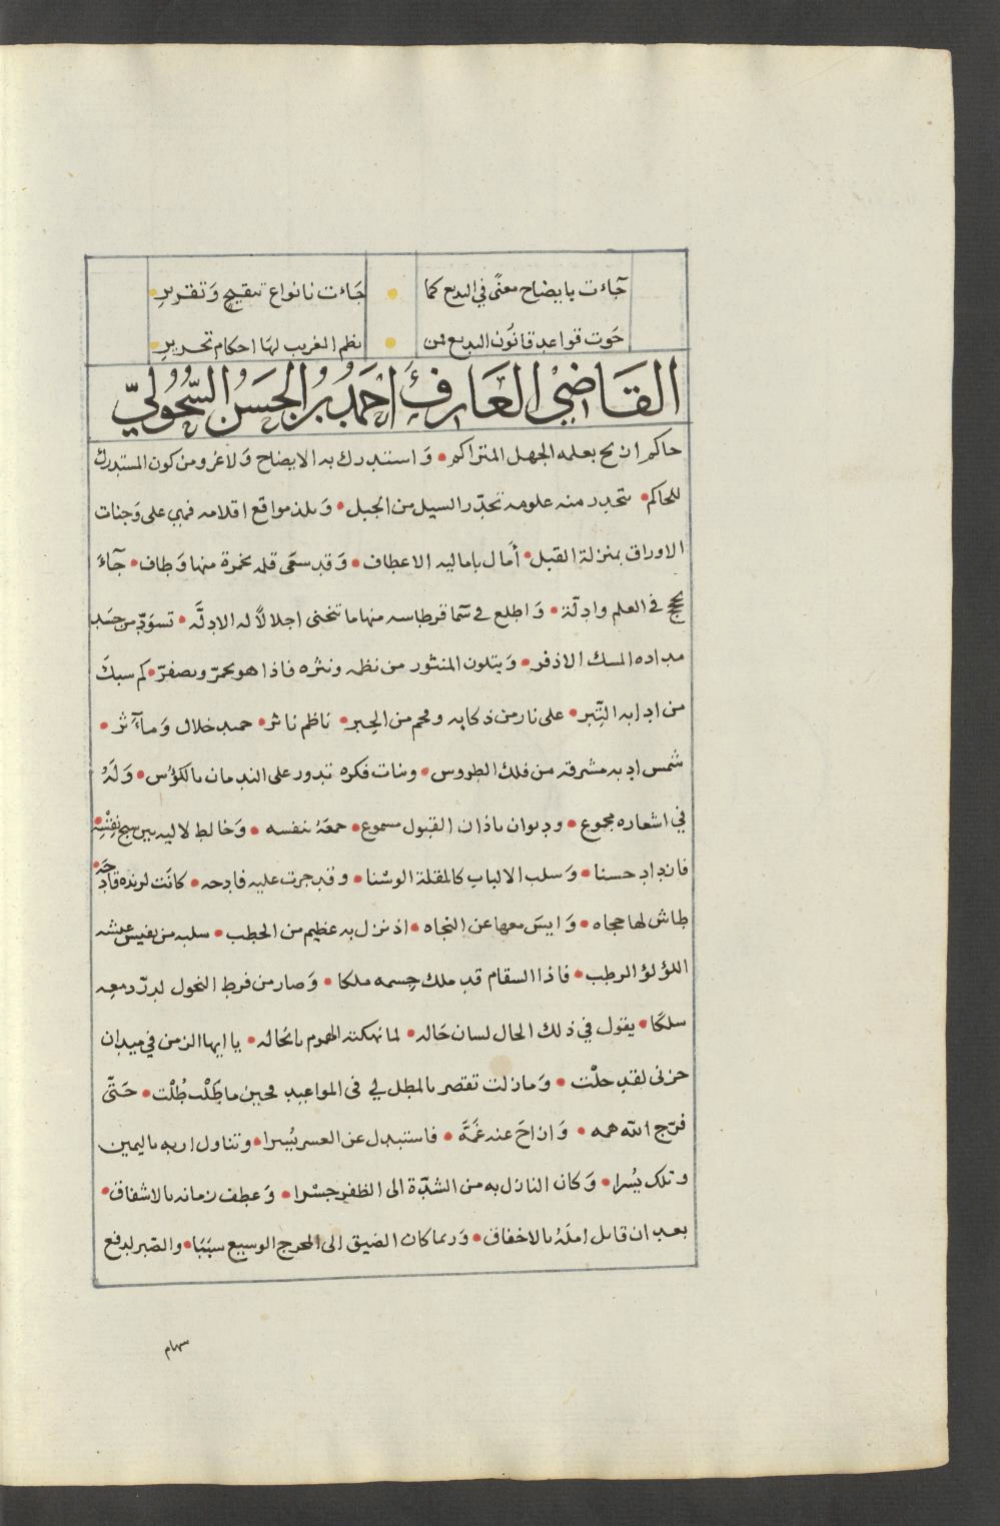 جآءت بايضاح معنًى في البدع كما • جَاءت بانواع تنقيح وَتقرير •
حَوت قواعد قانُون البديع فمن • نظم الغريب لهَا احكام تحرير •
القَاضِي العَارف أحمَدُ بن الحَسَن السُّحُولِيّ
حاكم انزيح بعلمه الجهل المتراكم • وَاستدرك به الايضاح وَلا غرو من كون المستدرك
للحاكم • تتحدر منه علومه تحدّر السيل من الجبل • وَتلذ مواقع اقلامه فهي على وَجنات
الاوراق بمنزلة القبل • أمال باماليه الاعطاف • وَقد سقى قلمه بخمرة منها وَطاف • جآءَ
بحجج في العلم وادلّة • وَاطلع في سَما قرطاسه منها ما تنحنى اجلالاً له الادلَّه • تسوَدّ من حَسَد
مداده المسك الاذفر • وَيتلون المنثور من نظمه ونثره فاذا هو يحمرّ ويصفرّ • كم سبكَ
من ادابه التِّبر • على نار من ذكايه وفحم من الحِبر • ناظم ناثر • حميد خلال وَمآثر •
شمس ادبه مشرقه من فلك الطروس • وبنات فكره تدور على الندمان بالكؤس • وَلَهُ
في اشعاره مجموع • وديوان باذان القبول مسموع • جمعَهُ بنفسه • وَخالط لاليه بين سبج نِقْسِه •
فازداد حسنا • وَسلب الالباب كالمقلة الوسْنا • وقد جرت عليه فادحه • كانَت لزنده قادِحَه •
طاش لها حجاه • وَايسَ معها عن النجاه • اذ نزل به عظيم من الخطب • سلبه من نفيس عيشه
اللؤلؤ الرطب • فاذا السقام قد ملك جسمه ملكا • وَصار من فرط النحول لدرّ دمعِه
سلكًا • يقول في ذلك الحال لسان حَاله • لما نهكته الهموم بانحاله • يا ايها الزمن في ميدان
حزنى لقد جلْت • وَما زلت تقتصر بالمطل لي فى المواعيد فحين ما طَلْت طُلْت • حَتّى
فرّج الله همه • وَازاحَ عنه غمَّة • فاستبدل عن العسر يُسرا • وتناول اربه باليمين
وتلك يُسرا • وَكان النازل به من الشدّة الى الظفر جسْرا • وَعطف زمانه بالاشفاق •
بعد ان قابل املَهُ بالاخفاق • وَربما كان الضيق الى المخرج الوسيع سبَبَا • والصّبر لدفع
سهام